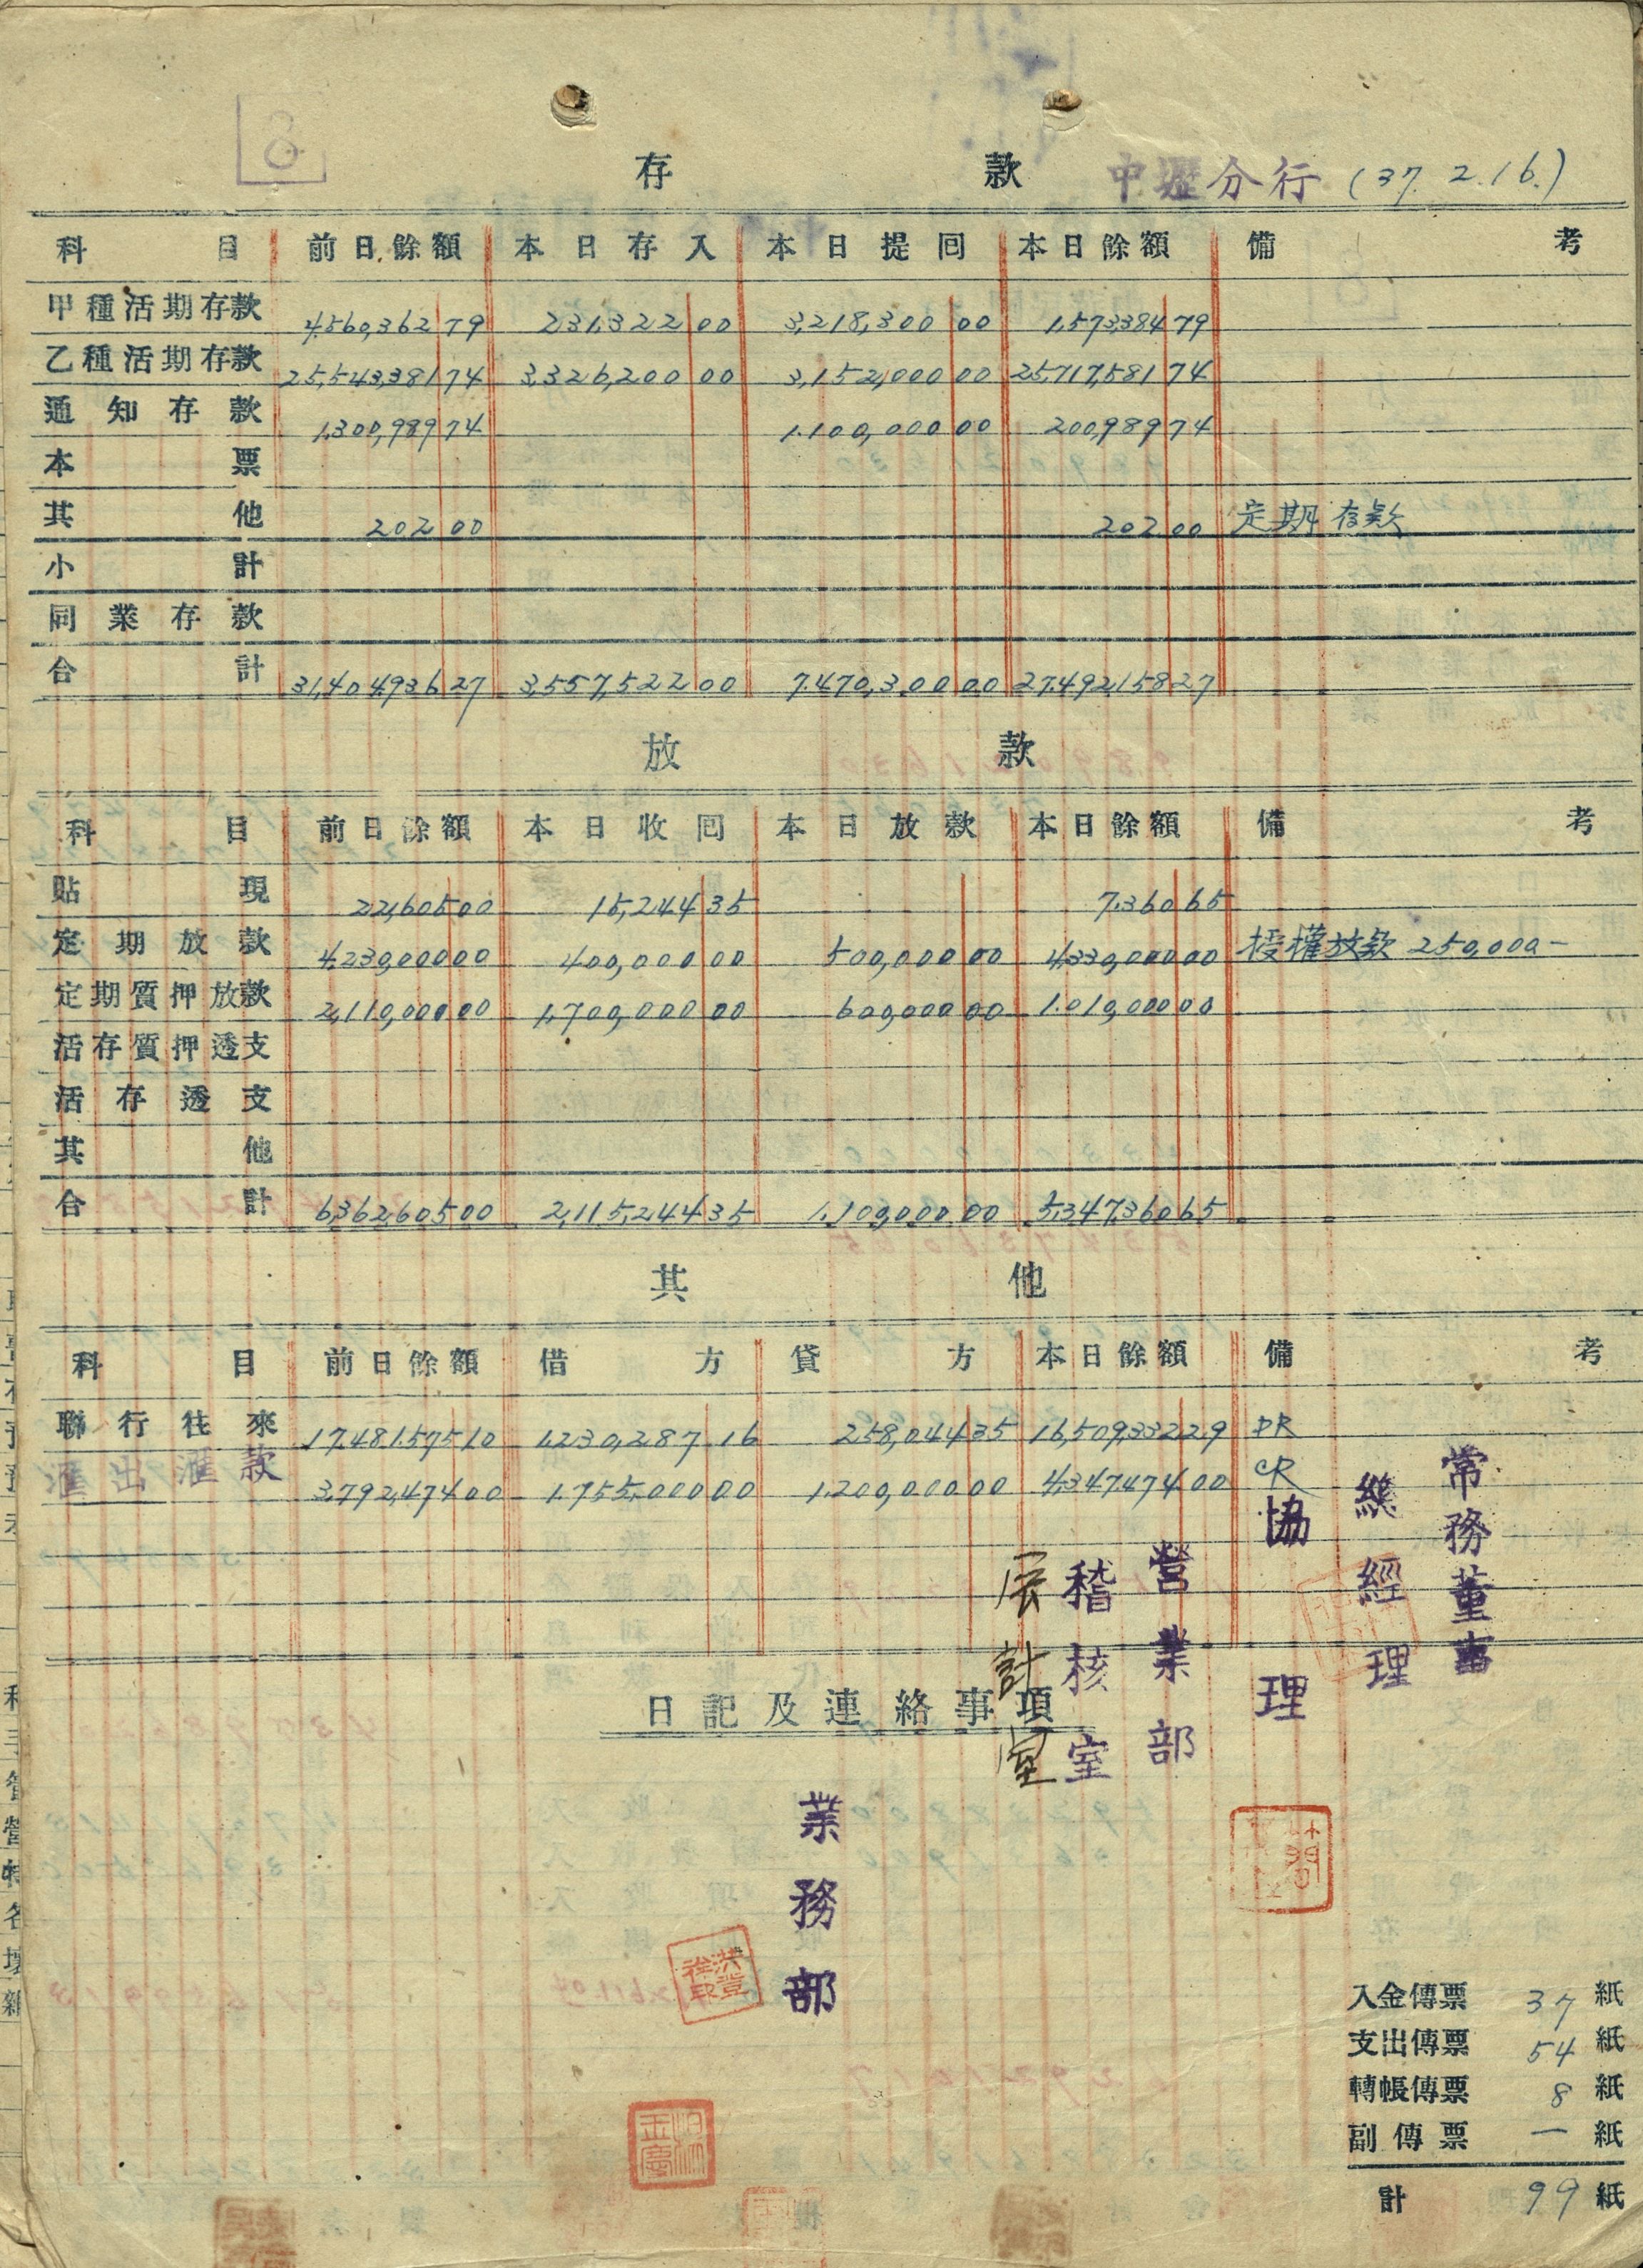 8
存款 中壢分行 (37. 2. 16.)
科目 前日餘額 本日存入 本日提囘 本日餘額 備考
甲種活期存款 4,560,362 79 231,322 00 3,218,300 00 1,573,384 79
乙種活期存款 25,543,381 74 3,326,200 00 3,152,000 00 25,717,581 74
通知存款 1,300,989 74 1,100,000 00 200,989 74
本票
其他 202 00 202 00 定期存款
小計
同業存款
合計 31,404,936 27 3,557,522 00 7,470,300 00 27,492,158 27
放款
科目 前日餘額 本日收囘 本日放款 本日餘額 備考
貼現 22,605 00 15,244 35 7,360 65
定期放款 4,230,000 00 400,000 00 500,000 00 4,330,000 00 授權放款 250,000-
定期質押放款 2,110,000 00 1,700,000 00 600,000 00 1,010,000 00
活存質押透支
活存透支
其他
合計 6,362,605 00 2,115,244 35 1,100,000 00 5,347,360 65
其他
科目 前日餘額 借方 貸方 本日餘額 備考
聯行往來 17,481,575 10 1,230,287 16 258,044 35 16,509,332 29 DR
滙出滙款 3,792,474 00 1,755,000 00 1,200,000 00 4,347,474 00 CR
常務董事
總經理
協理
營業部
稽核室
計室
日記及連絡事項
業務部
入金傳票 37 紙
支出傳票 54 紙
轉帳傳票 8 紙
副傳票 一 紙
計 99 紙